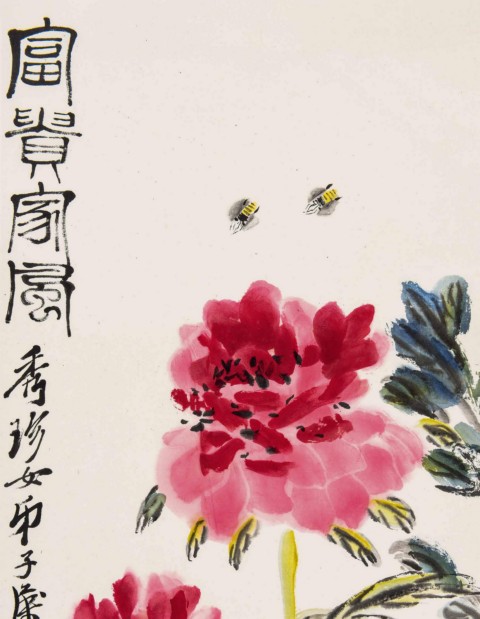 富貴家風
秀珍女弟子屬